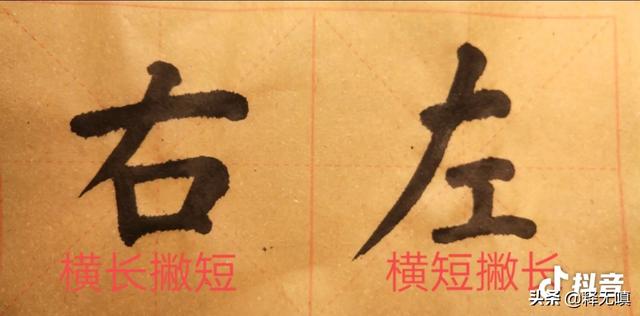 右 左
横长撇短 横短撇长
抖音
头条 @释无嗔